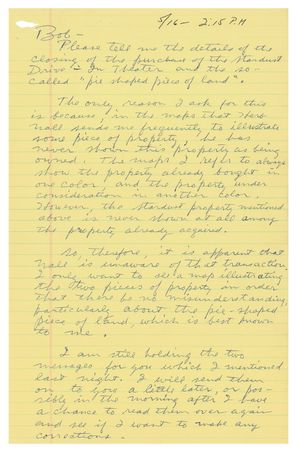 5/16 - 2:15 P.M
Bob -
Please tell me the details of the
closing of the purchase of the Stardust
Drive - In Theater and the so-
called "pie shaped piece of land".
The only reason I ask for this
is because, in the maps that Herb
Nall sends me frequently to illustrate
some piece of property, he has
never shown this property as being
owned. The maps I refer to always
show the property already bought in
one color and the property under
consideration in another color.
However, the Stardust property mentioned
above is never shown at all among
the property already acquired.
So, therefore, it is apparent that
Nall is unaware of that transaction.
I only want to see a map illustrating
the two pieces of property in order
that there be no misunderstanding,
particularly about the pie-shaped
piece of land, which is best known
to me.
I am still holding the two
messages for you which I mentioned
last night. I will send them
on to you a little later, or pos-
sibly in the morning after I have
a chance to read them over again
and see if I want to make any
corrections.